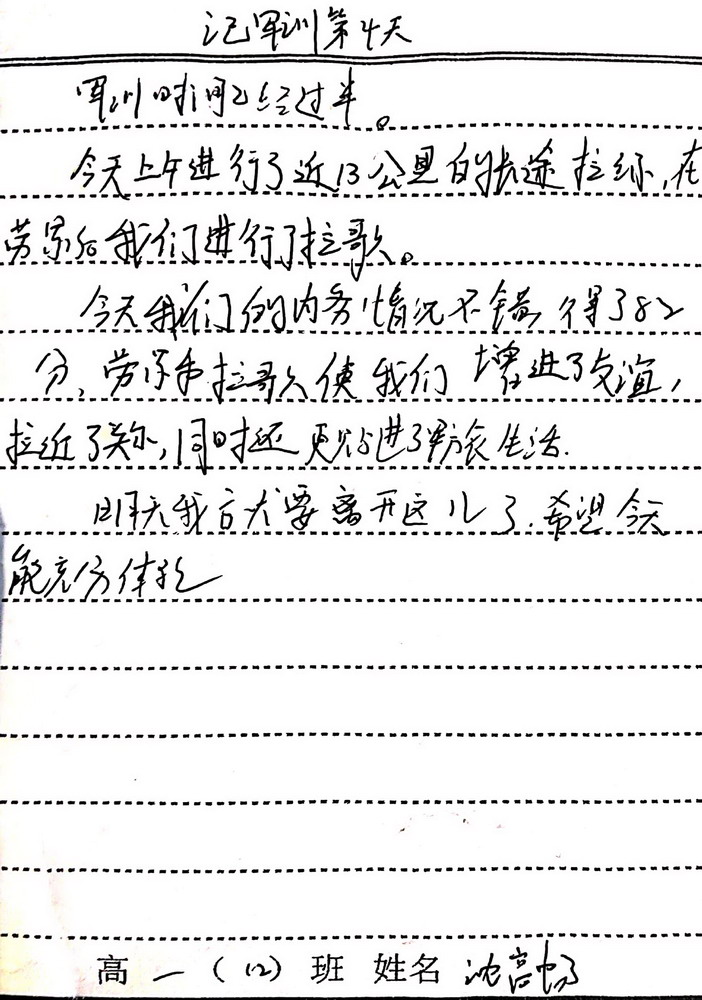 记军训第4天
军训时间已经过半。
今天上午进行了近13公里的长途拉练,在
劳累后我们进行了拉歌。
今天我们的内务情况不错,得了82
分,劳累和拉歌使我们增进了友谊,
拉近了关系,同时还更促进了军旅生活.
明天我们就要离开这儿了.希望今天
能充分体验
高一(12)班 姓名 沈高畅